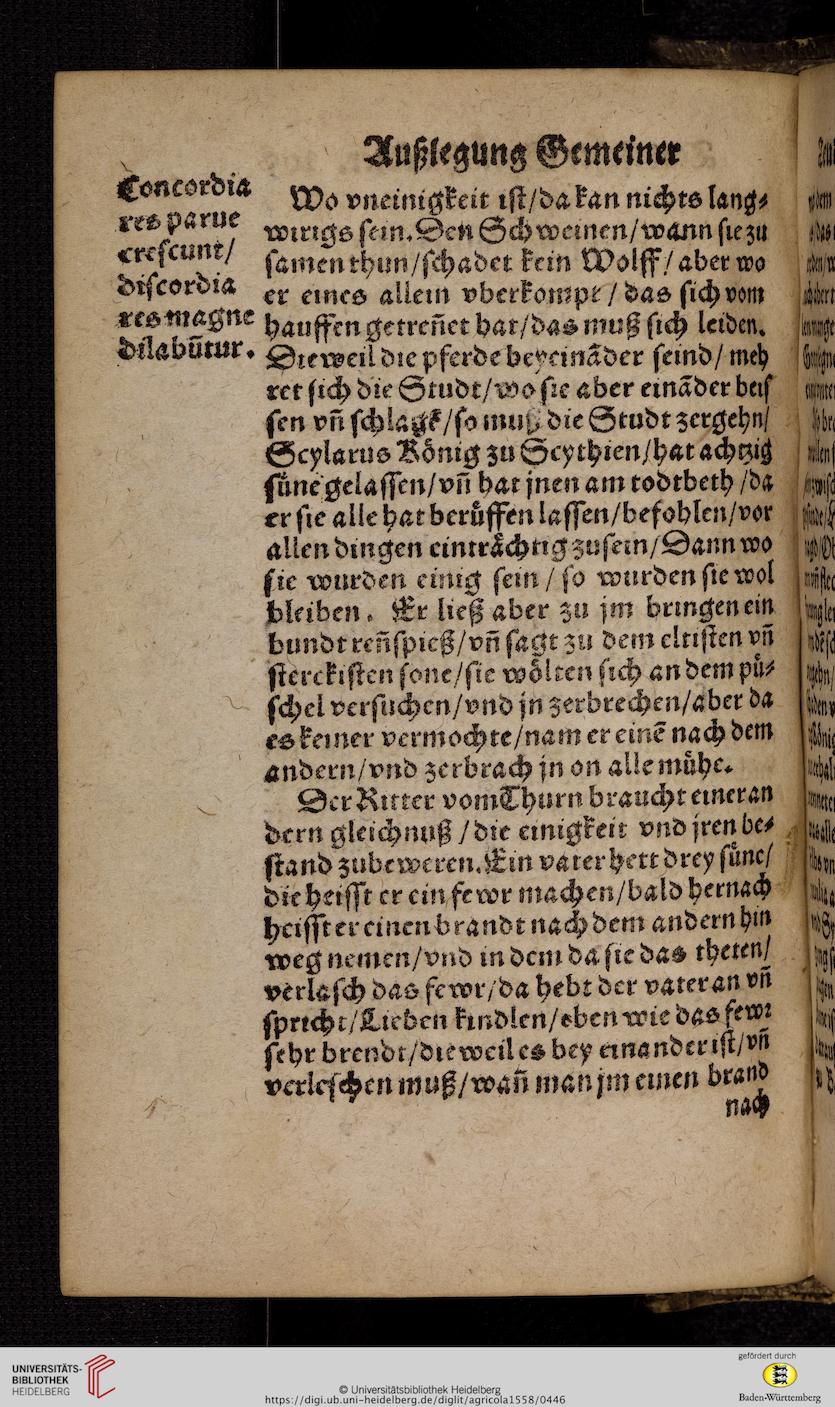 Außlegung Gemeiner
Concordia
res parue
crescunt/
discordia
res magne
dilabūtur.
Wo vneinigkeit ist/da kan nichts lang⸗
wirigs sein. Den Schweinen/wann sie zu
samen thun/schadet kein Wolff/ aber wo
er eines allein vberkompt / das sich vom
hauffen getreñet hat/das muß sich leiden.
Dieweil die pferde beyeinãder seind/ meh
ret sich die Studt/wo sie aber einãder beis
sen vñ schlagẽ/so muß die Studt zergehn/
Scylarus Kônig zu Scythien/hat achtzig
sûne gelassen/vñ hat jnen am todtbeth /da
er sie alle hat berûffen lassen/befohlen/vor
allen dingen eintrâchtig zusein/Dann wo
sie wurden einig sein / so wurden sie wol
bleiben. Er ließ aber zu jm bringen ein
bundt reñspieß/vñ sagt zu dem eltisten vñ
sterckisten sone/sie wôlten sich an dem pû⸗
schel versuchen/vnd jn zerbrechen/aber da
es keiner vermochte/nam er einẽ nach dem
andern/vnd zerbrach jn on alle mûhe.
Der Ritter vom Thurn braucht einer an
dern gleichnuß / die einigkeit vnd jren be⸗
stand zubeweren. Ein vater hett drey sûne/
die heisst er ein fewr machen/bald hernach
heisst er einen brandt nach dem andern hin
weg nemen/vnd in dem da sie das theten/
verlasch das fewr/da hebt der vater an vñ
spricht/Lieben kindlen/eben wie das fewr
sehr brendt/dieweil es bey einander ist/vñ
verleschen muß/wañ man jm einen brand
nach
UNIVERSITÄTS-
BIBLIOTHEK
HEIDELBERG
© Universitätsbibliothek Heidelberg
https://digi.ub.uni-heidelberg.de/diglit/agricola1558/0446
gefördert durch
Baden-Württemberg